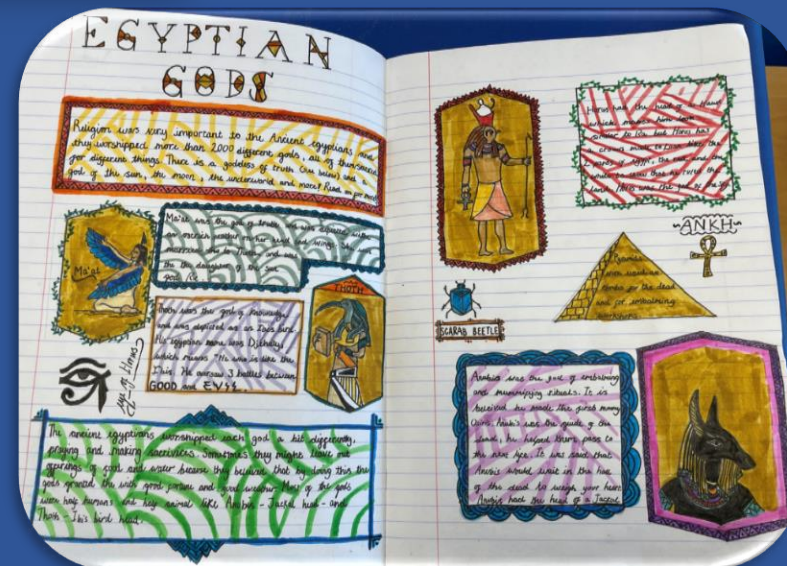 EGYPTIAN
GODS
Religion was very important to the Ancient egyptians and
they worshipped more than 2000 different gods, all of them
for different things. There is a goddess of truth (see below) and
god of the sun, the moon, the underworld and more! Read on
Ma'at was the god of truth
an ostrich feather on her head and wings. She
married to Thoth and was
the daughter of the sun
god
Ma'at
Thoth was the god of knowledge
and was depicted as an Ibis bird.
His egyptian name was Djehuty
which means "He who is like the
Ibis. He oversaw 3 battles between
GOOD and
THOTH
eye of Horus
The ancient egyptians worshipped each god a bit differently,
praying and making sacrifices. Sometimes they might leave out
offerings of food and water because they believed that by doing this the
gods granted the was good and good weather. Most of the gods
were half humans and half animal like Anubis - Jackal head - and
Thoth - Ibis bird head.
Horus had the head of a Hawk
which makes him look
similar to Ra, but Horus has
a crown made to look like the
2 parts of Egypt, the red and the
white to show that he ruled the
land. Horus was the god of the sky
ANKH
Pyramids
were used as
tombs for the dead
and for embalming
SCARAB BEETLE
Anubis was the god of embalming
and mummifying rituals. It is
believed he made the first mummy
Osiris. Anubis was the guide of the
dead, he helped them pass to
the next life. It was said that
Anubis would wait in the
of the dead to weigh your heart
Anubis had the head of a Jackal